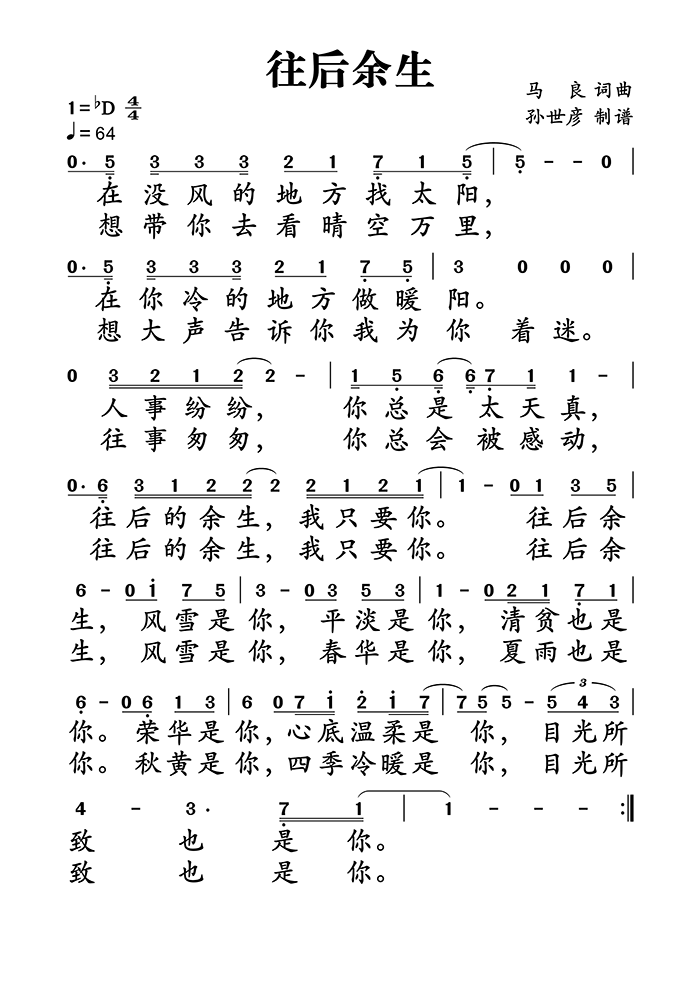 往后余生
马 良 词曲
1=♭D 4/4
孙世彦 制谱
♩=64
0· 5 3 3 3 2 1 7 1 5 | 5 - - 0 |
在没风的地方找太阳，
想带你去看晴空万里，
0· 5 3 3 3 2 1 7 5 | 3 0 0 0 |
在你冷的地方做暖阳。
想大声告诉你我为你着迷。
0 3 2 1 2 2 - | 1 5 6 6 7 1 1 - |
人事纷纷， 你总是太天真，
往事匆匆， 你总会被感动，
0· 6 3 1 2 2 2 2 1 2 1 | 1 - 0 1 3 5 |
往后的余生，我只要你。 往后余
往后的余生，我只要你。 往后余
6 - 0 1 7 5 | 3 - 0 3 5 3 | 1 - 0 2 1 7 1 |
生，风雪是你，平淡是你，清贫也是
生，风雪是你，春华是你，夏雨也是
6 - 0 6 1 3 | 6 0 7 1 2 1 7 | 7 5 5 - 5 4 3 |
你。荣华是你，心底温柔是 你，目光所
你。秋黄是你，四季冷暖是 你，目光所
4 - 3· 7 1 | 1 - - - :‖
致 也 是 你。
致 也 是 你。